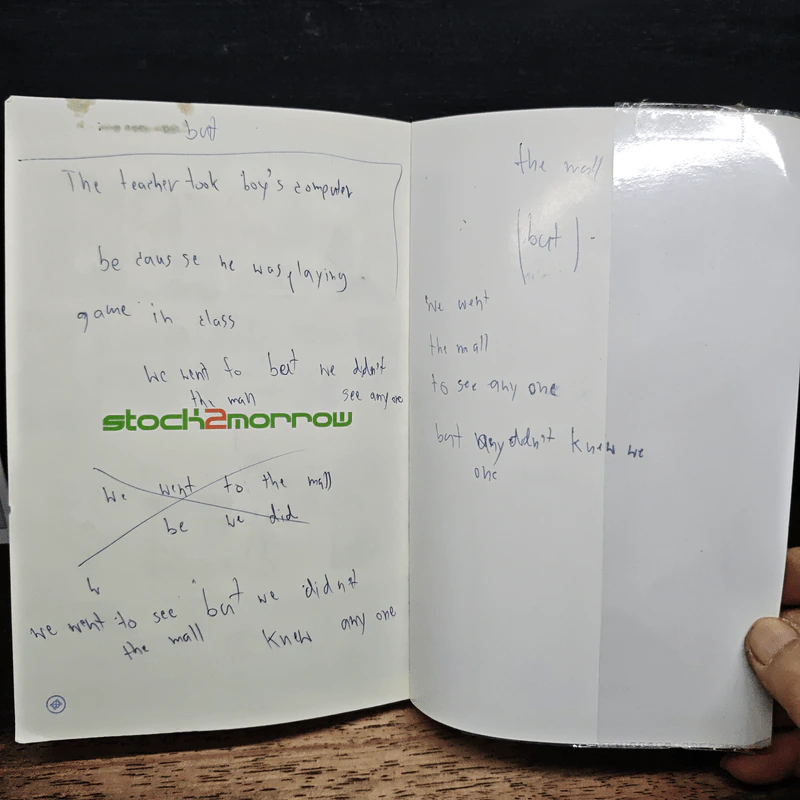 but
The teacher took boy's computer
be cause se he was playing
game in class
We went to but we didn't
the mall see any one
stock2morrow
We went to the mall
be we did
W
we went to see but we didn't
the mall knew any one
the mall
(but)
we went
the mall
to see any one
but any didn't knew we
one